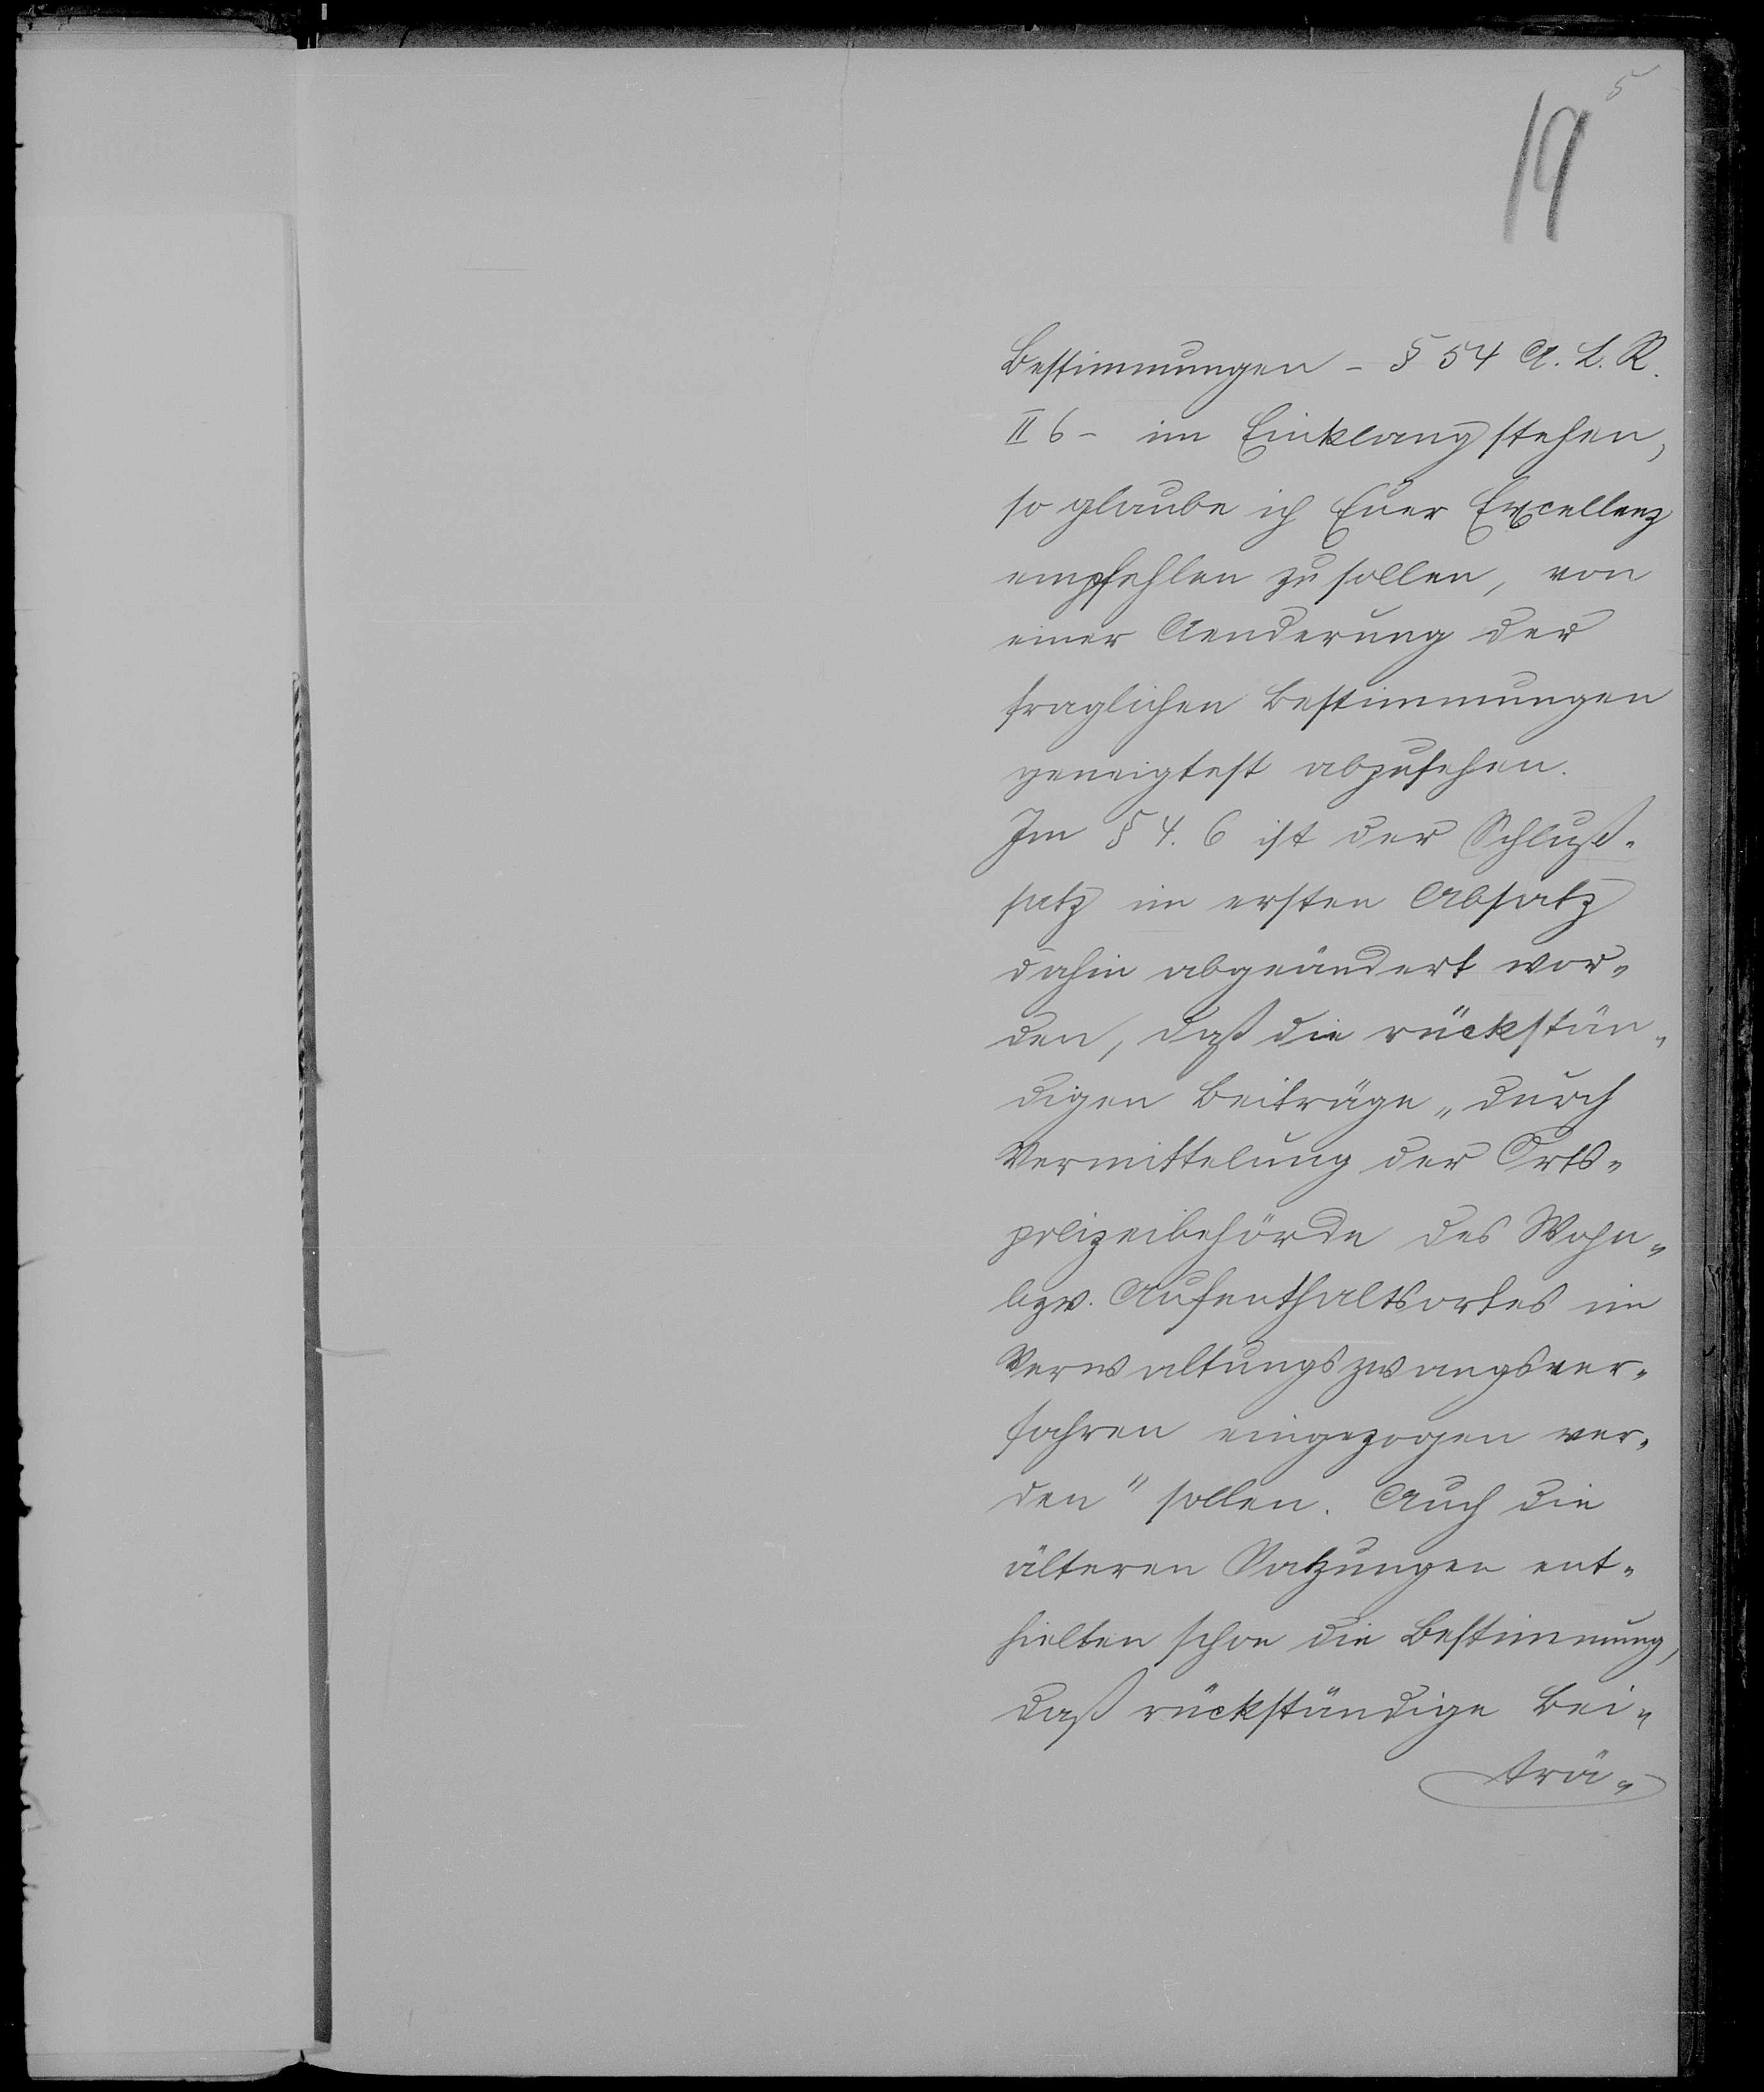 5
19
Bestimmungen - § 54 A. L. R.
II 6 - im Einklang stehen,
so glaube ich Euer Excellenz
empfehlen zu sollen, von
einer Aenderung der
fraglichen Bestimmungen
geneigtest abzusehen.
Im § 4. 6 ist der Schluß-
satz im ersten Absatz
dahin abgeändert wor-
den, daß die rückstän-
digen Beiträge „durch
Vermittelung der Orts-
polizeibehörde des Wohn-
bzw. Aufenthaltsortes im
Verwaltungszwangsver-
fahren eingezogen wer-
den" sollen. Auch die
älteren Satzungen ent-
hielten schon die Bestimmung,
daß rückständige Bei-
trä-